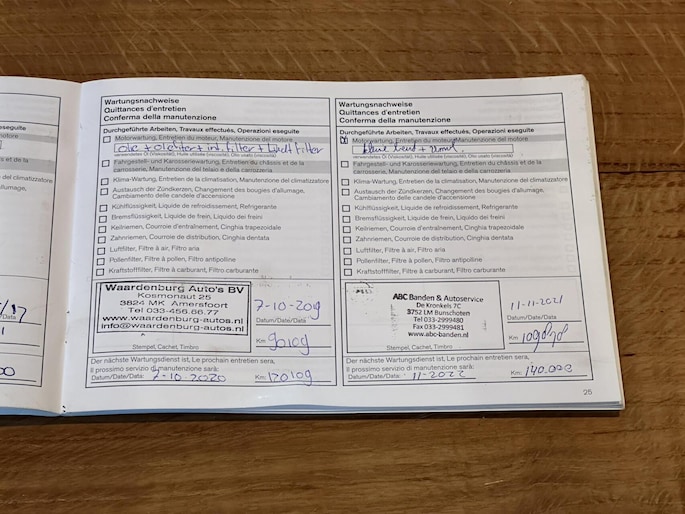 eseguite
es et de la
climatizzatore
allumage,
Wartungsnachweise
Quittances d'entretien
Conferma della manutenzione
Durchgeführte Arbeiten, Travaux effectués, Operazioni eseguite
Motorwartung, Entretien du moteur, Manutenzione del motore
olie + oliefilter + int. filter + lucht filter
verwendetes Öl (Viskosität), Huile utilisée (viscosité), Olio usato (viscosità)
Fahrgestell- und Karosseriewartung, Entretien du châssis et de la
carrosserie, Manutenzione del telaio e della carrozzeria
Klima-Wartung, Entretien de la climatisation, Manutenzione del climatizzatore
Austausch der Zündkerzen, Changement des bougies d'allumage,
Cambiamento delle candele d'accensione
Kühlflüssigkeit, Liquide de refroidissement, Refrigerante
Bremsflüssigkeit, Liquide de frein, Liquido dei freini
Keilriemen, Courroie de ventilateur, Cinghia trapezoidale
Zahnriemen, Courroie de distribution, Cinghia dentata
Luftfilter, Filtre à air, Filtro aria
Pollenfilter, Filtre à pollen, Filtro antipolline
Kraftstofffilter, Filtre à carburant, Filtro carburante
Waardenburg Auto's BV
Kosmonaut 25
3824 MK Amersfoort
Tel 033-456.66.77
www.waardenburg-autos.nl
info@waardenburg-autos.nl
Stempel, Cachet, Timbro
7-10-2019
Datum/Date/Data
Km: 90109
Der nächste Wartungsdienst ist, Le prochain entretien sera,
Il prossimo servizio di manutenzione sarà:
Datum/Date/Data: 7-10-2020 Km: 120109
Wartungsnachweise
Quittances d'entretien
Conferma della manutenzione
Durchgeführte Arbeiten, Travaux effectués, Operazioni eseguite
Motorwartung, Entretien du moteur, Manutenzione del motore
verwendetes Öl (Viskosität), Huile utilisée (viscosité), Olio usato (viscosità)
Fahrgestell- und Karosseriewartung, Entretien du châssis et de la
carrosserie, Manutenzione del telaio e della carrozzeria
Klima-Wartung, Entretien de la climatisation, Manutenzione del climatizzatore
Austausch der Zündkerzen, Changement des bougies d'allumage,
Cambiamento delle candele d'accensione
Kühlflüssigkeit, Liquide de refroidissement, Refrigerante
Bremsflüssigkeit, Liquide de frein, Liquido dei freini
Keilriemen, Courroie de ventilateur, Cinghia trapezoidale
Zahnriemen, Courroie de distribution, Cinghia dentata
Luftfilter, Filtre à air, Filtro aria
Pollenfilter, Filtre à pollen, Filtro antipolline
Kraftstofffilter, Filtre à carburant, Filtro carburante
ABC Banden & Autoservice
De Kronkels 7C
3752 LM Bunschoten
Tel 033-2999480
Fax 033-2999481
www.abc-banden.nl
Stempel, Cachet, Timbro
11-11-2021
Datum/Date/Data
Km:
Der nächste Wartungsdienst ist, Le prochain entretien sera,
Il prossimo servizio di manutenzione sarà:
Datum/Date/Data: 11-2022 Km: 140.000
25